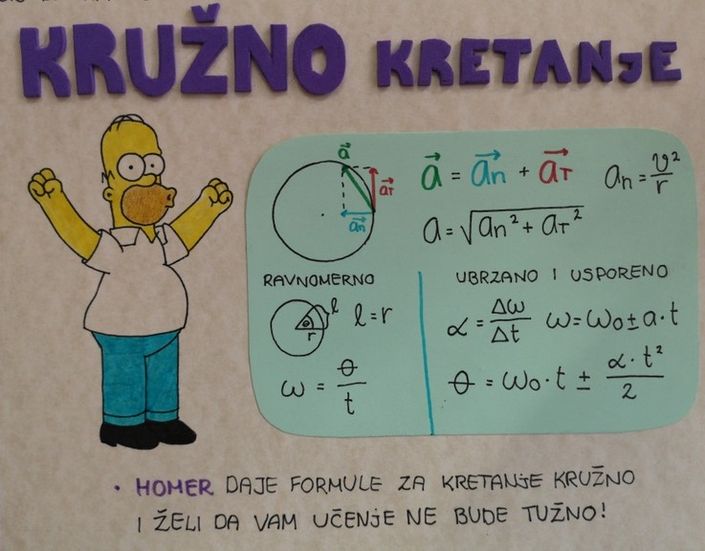 KRUŽNO KRETANJE
a⃗ = a⃗n + a⃗T
an = v²/r
a = √(an² + aT²)
a⃗
a⃗T
a⃗n
RAVNOMERNO
l
r
θ
l = r
ω = θ/t
UBRZANO I USPORENO
α = Δω/Δt ω = ω0 ± a · t
θ = ω0 · t ± α · t²/2
• HOMER DAJE FORMULE ZA KRETANJE KRUŽNO
I ŽELI DA VAM UČENJE NE BUDE TUŽNO!